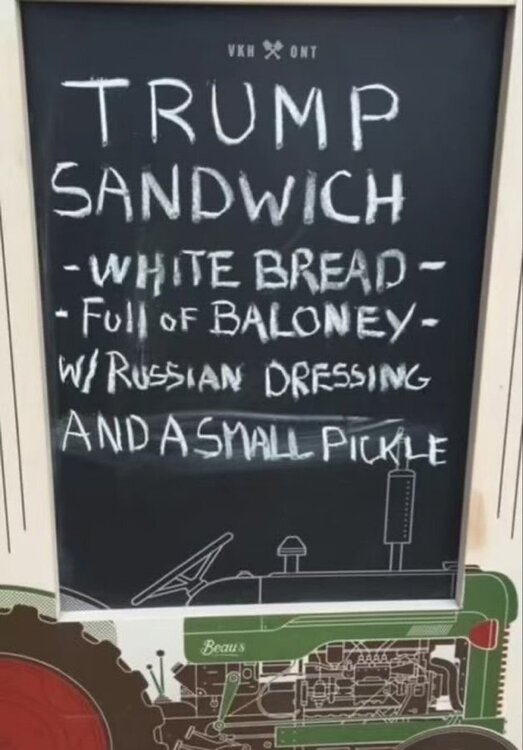 VKH ONT
TRUMP
SANDWICH
-WHITE BREAD-
-Full OF BALONEY-
W/ RUSSIAN DRESSING
AND A SMALL PICKLE
Beau's